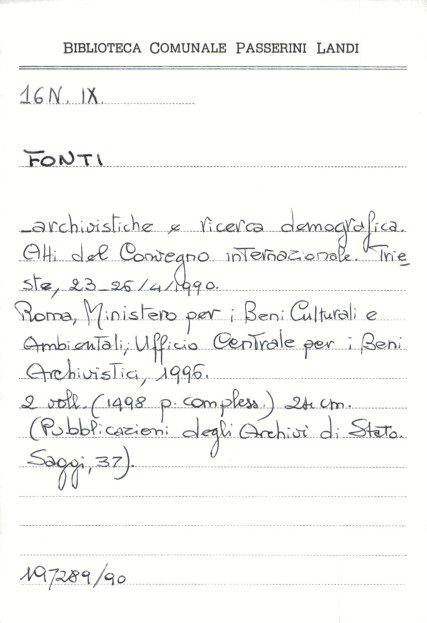 BIBLIOTECA COMUNALE PASSERINI LANDI
16N. IX.
FONTI
_archivistiche e ricerca demografica.
Atti del Convegno internazionale. Trie
ste, 23-26/4/1990.
Roma, Ministero per i Beni Culturali e
Ambientali; Ufficio Centrale per i Beni
Archivistici, 1996.
2 voll. (1498 p. compless.) 24 cm.
(Pubblicazioni degli Archivi di Stato.
Saggi, 37).
197289/90